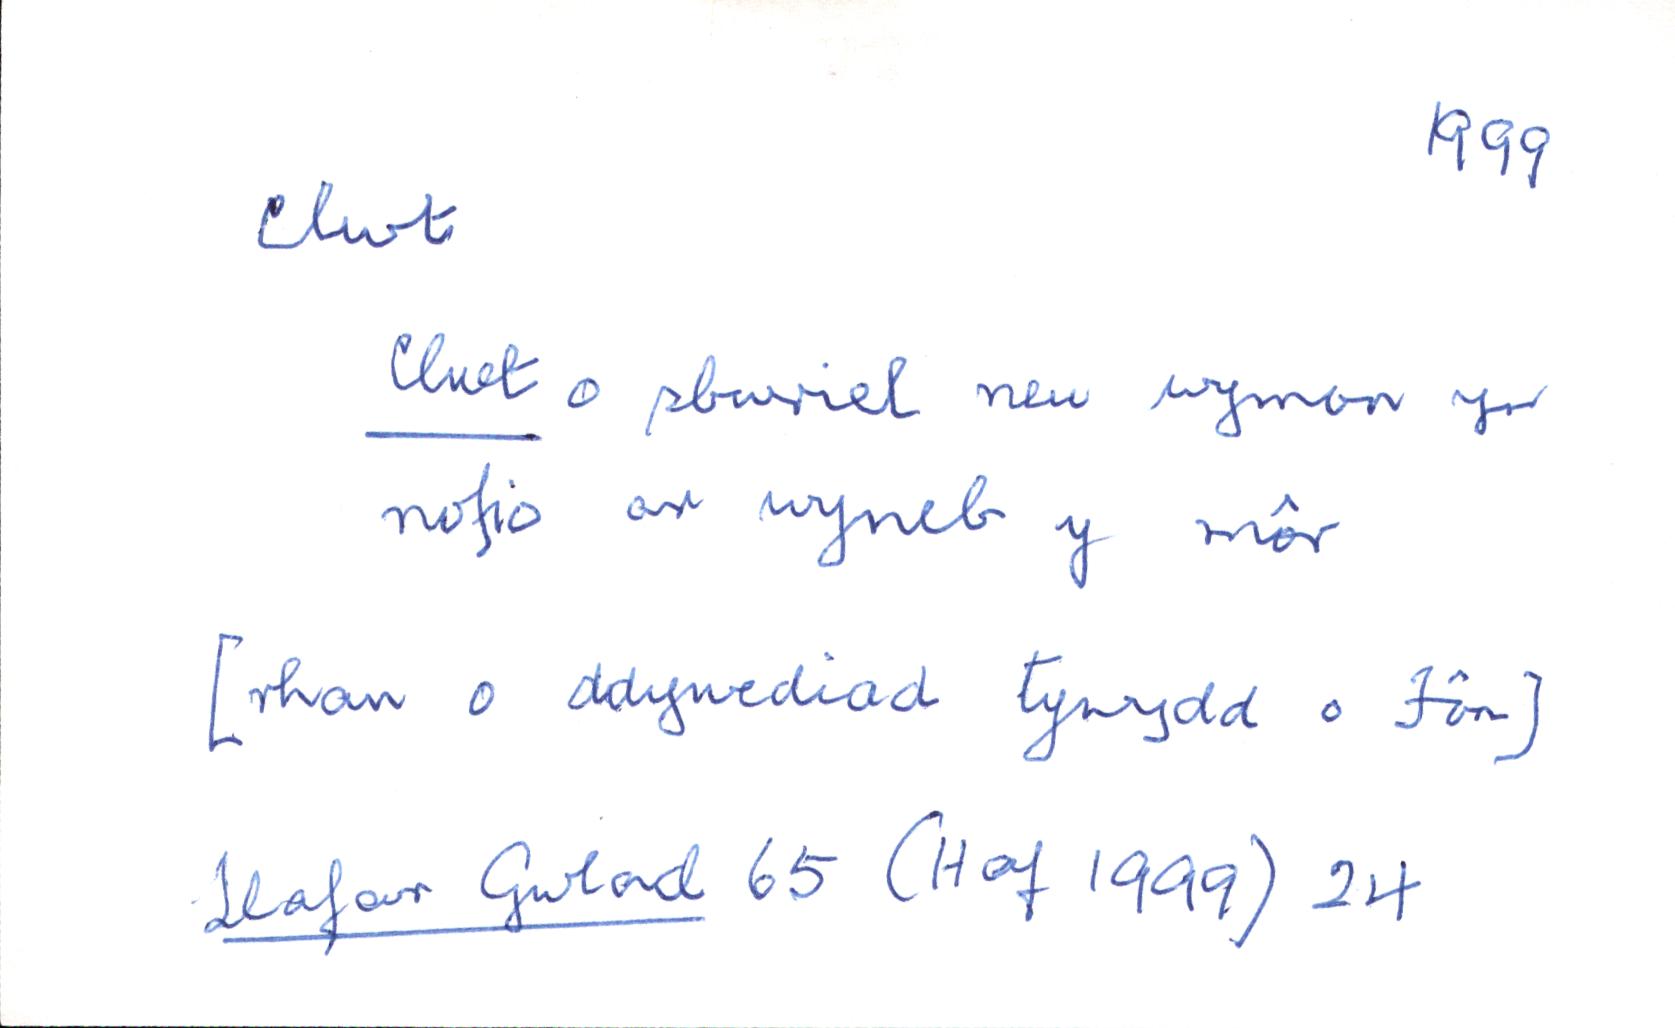 1999
Clwt
Clwt o sbwriel neu wymon yn
nofio ar wyneb y môr
[rhan o ddywediad tywydd o Fôn]
Llafar Gwlad 65 (Haf 1999) 24